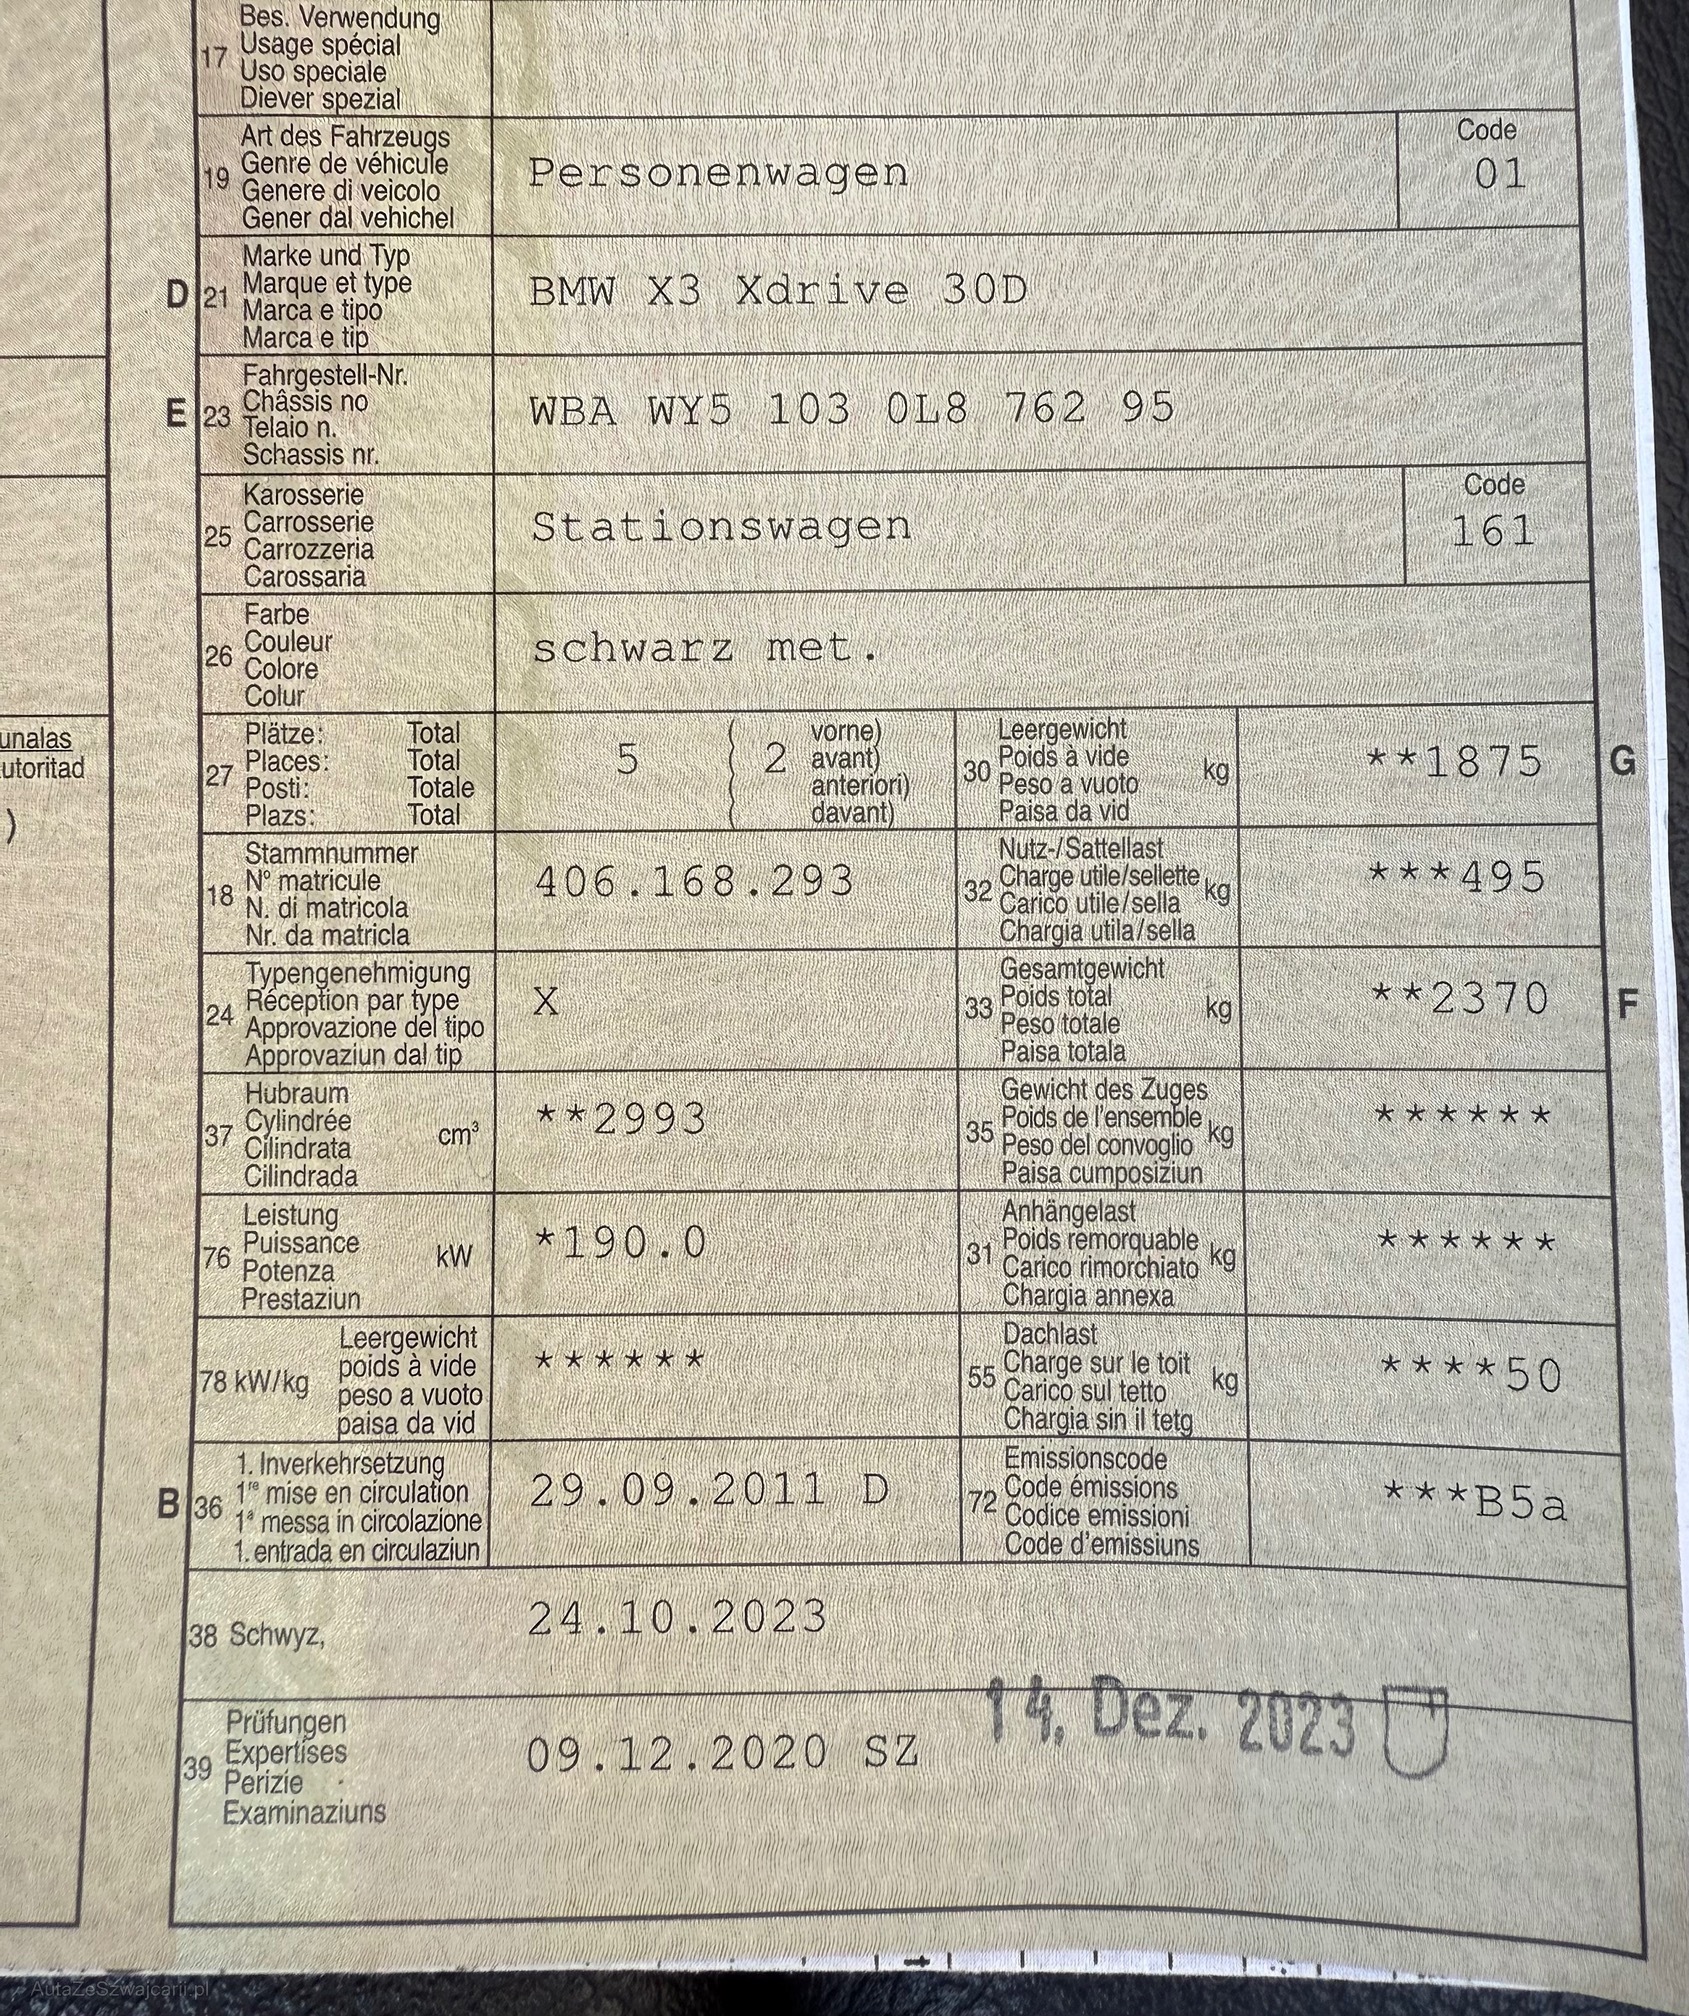 17 Bes. Verwendung
Usage spécial
Uso speciale
Diever spezial
19 Art des Fahrzeugs
Genre de véhicule
Genere di veicolo
Gener dal vehichel
Personenwagen
Code
01
D 21 Marke und Typ
Marque et type
Marca e tipo
Marca e tip
BMW X3 Xdrive 30D
E 23 Fahrgestell-Nr.
Châssis no
Telaio n.
Schassis nr.
WBA WY5 103 0L8 762 95
25 Karosserie
Carrosserie
Carrozzeria
Carossaria
Stationswagen
Code
161
26 Farbe
Couleur
Colore
Colur
schwarz met.
unalas
utoritad
)
27 Plätze: Total
Places: Total
Posti: Totale
Plazs: Total
5 ( 2 vorne)
( avant)
( anteriori)
( davant)
30 Leergewicht
Poids à vide
Peso a vuoto
Paisa da vid
kg
**1875
G
18 Stammnummer
N° matricule
N. di matricola
Nr. da matricla
406.168.293
32 Nutz-/Sattellast
Charge utile/sellette
Carico utile/sella
Chargia utila/sella
kg
***495
24 Typengenehmigung
Réception par type
Approvazione del tipo
Approvaziun dal tip
X
33 Gesamtgewicht
Poids total
Peso totale
Paisa totala
kg
**2370
F
37 Hubraum
Cylindrée
Cilindrata
Cilindrada
cm³
**2993
35 Gewicht des Zuges
Poids de l'ensemble
Peso del convoglio
Paisa cumposiziun
kg
******
76 Leistung
Puissance
Potenza
Prestaziun
kW
*190.0
31 Anhängelast
Poids remorquable
Carico rimorchiato
Chargia annexa
kg
******
78 kW/kg
Leergewicht
poids à vide
peso a vuoto
paisa da vid
******
55 Dachlast
Charge sur le toit
Carico sul tetto
Chargia sin il tetg
kg
****50
B 36 1. Inverkehrsetzung
1re mise en circulation
1a messa in circolazione
1. entrada en circulaziun
29.09.2011 D
72 Emissionscode
Code émissions
Codice emissioni
Code d'emissiuns
***B5a
38 Schwyz,
24.10.2023
39 Prüfungen
Expertises
Perizie
Examinaziuns
09.12.2020 SZ
14. Dez. 2023
AutaZeSzwajcarii.pl